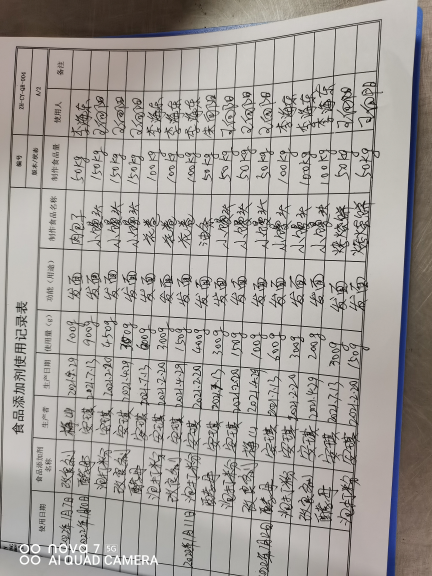 食品添加剂使用记录表
编号 ZH-CY-QR-006
版本/状态 A/2
使用日期 食品添加剂名称 生产者 生产日期 使用量(g) 功能(用途) 制作食品名称 制作食品量 使用人 备注
2022年1月7日 改良剂 梅山 2021.4.29 100g 发面 肉包子 50kg 李海东
酵母 安琪 2021.7.13 900g 发面 小馒头 150kg 刁向阳
泡打粉 安琪 2021.2.20 450g 发面 小馒头 150kg 刁向阳
改良剂 安琪 2021.4.29 发面 小馒头 150kg
酵母 安琪 2021.7.13 600g 发面 花卷 100kg 李海东
泡打粉 安琪 2021.2.20 300g 发面 花卷 100kg 李海东
改良剂 安琪 2021.4.29 150g 发面 花卷 100kg 李海东
2022年1月11日 泡打粉 安琪 2021.2.20 400g 发面 油条 50kg
酵母 安琪 2021.7.13 300g 发面 小馒头 50kg 刁向阳
泡打粉 安琪 150g 发面 小馒头 50kg 刁向阳
改良剂 梅山 2021.4.29 100g 发面 小馒头 50kg 刁向阳
酵母 安琪 2021.7.13 600g 发面 小馒头 100kg 李海东
泡打粉 安琪 2021.2.20 300g 发面 小馒头 100kg 李海东
改良剂 安琪 2021.4.29 200g 发面 小馒头 100kg 李海东
酵母 安琪 2021.7.13 300g 发面 50kg 刁向阳
泡打粉 安琪 2021.2.20 150g 发面 50kg 刁向阳
nova 7 5G
AI QUAD CAMERA